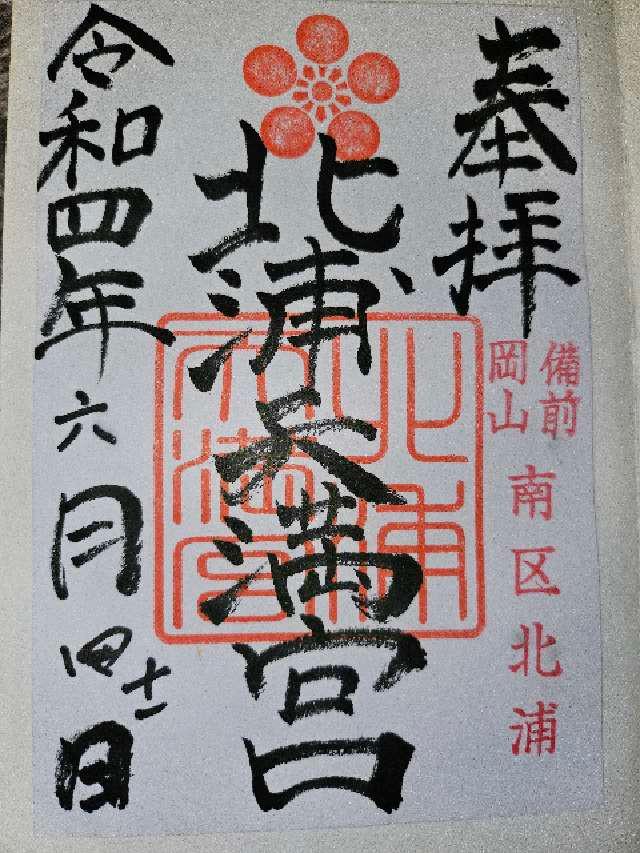 奉拝
備前
岡山
南区北浦
北浦天満宮
北浦
天満宮
令和四年六月日